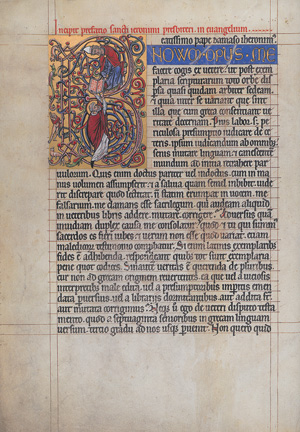 Incipit prefatio sancti ieronimi presbiteri in euangelium
NOVVM OPUS ME
facere cogis ex ueteri: ut post exem
plaria scripturarum toto orbe dis
persa quasi quidam arbiter sedeam.
& quia inter se uariant que sint
illa que cum greca consentiant ue
ritate decernam. Pius labor. s; pe
riculosa presumptio iudicare de ce
teris. ipsum iudicandum ab omnibus
senis mutare linguam. & canescente
mundum ad initia retrahere par
uulorum. Quis enim doctus pariter uel indoctus. cum in ma
nus uolumen assumpserit. & a saliua quam semel inbibit uide
rit discrepare quod lectitat. statim erumpat in uocem. me
falsarium. me clamans esse sacrilegum. qui audeam aliquid
in ueteribus libris addere. mutare. corrigere. Aduersus qua
inuidiam duplex causa me consolatur. quod & tu qui summus
sacerdos es fieri iubes. & uerum non esse quod uariat. etiam
maledicorum testimonio comprobatur. Si enim latinis exemplaribus
fides est adhibenda. respondeant quibus. tot sunt exemplaria
pene quot codices. Sin autem ueritas est querenda de pluribus.
cur non ad grecam originem reuertentes. ea que uel a uitiosis
interpretibus male edita. uel a presumptoribus imperitis emen
data peruersius. uel a librariis dormitantibus aut addita sunt
aut mutata corrigimus? Neq; ego de ueteri disputo testa
mento. quod a septuaginta senioribus in grecam linguam
uersum. tertio gradu ad nos usq; peruenit. Non quero quid